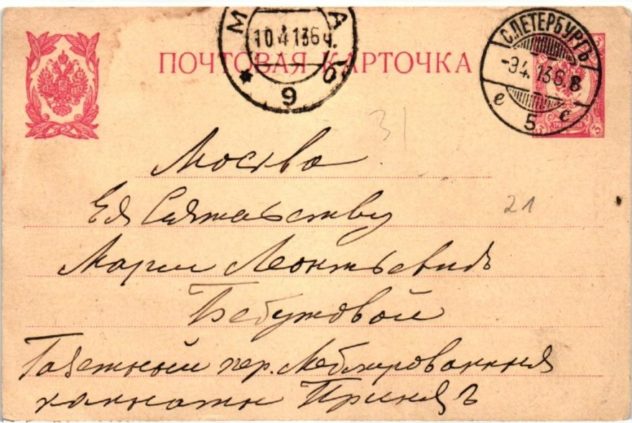 М А
10.4.13 6 ч.
* 9 б
ПОЧТОВАЯ КАРТОЧКА
С.ПЕТЕРБУРГЪ
-9 4. 13 6 в
е 5 е
31
Москва
Ея Сіятельству
21
Маріи Леонтьевнѣ
Бебутовой
Газетный пер. Меблированныя
комнаты